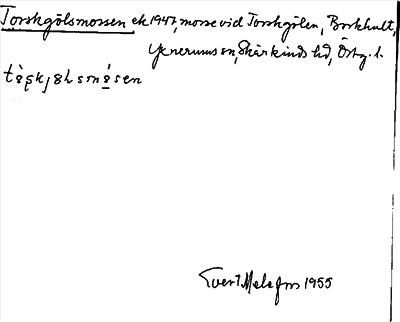 Torskgölsmossen ek 1947, mosse vid Torskgölen, Borkhult,
Yxnerums sn, Skärkinds hd, Östg. l.
Evert Melefors 1955